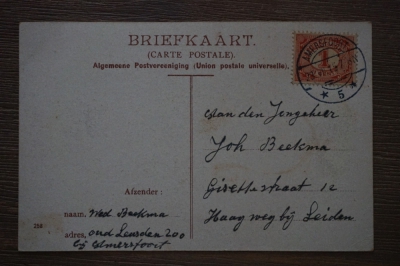 BRIEFKAART.
(CARTE POSTALE).
Algemeene Postvereeniging (Union postale universelle).
5
Aan den Jongeheer
Joh Beekma
straat 1e
Haagweg bij Leiden
Afzender:
naam, Wed Beekma
adres, oud Leusden 200
bij Amersfoort